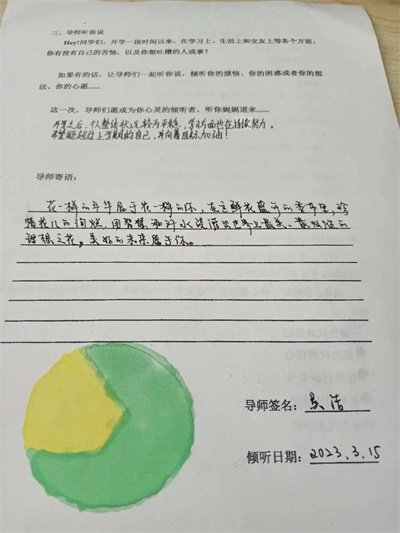 三、导师听你说
Hey!同学们，开学一段时间以来，在学习上、生活上和交友上等各个方面，
你有没有自己的苦恼，以及你想吐槽的人或事？
如果有的话，让导师们一起听你说，倾听你的烦恼、你的困惑或者你的想
法、你的心愿……
这一次，导师们愿成为你心灵的倾听者，听你娓娓道来……
开学之后，个人整体状况较为平稳，学习方面也在持续努力。
希望能超过上学期的自己，并向着目标加油！
导师寄语：
花一样的年华属于花一样的你，在这鲜花盛开的季节里，
花儿的绚烂，用智慧和汗水浇灌出世界上最美、最
理想之花。美好的未来属于你。
导师签名：吴洁
倾听日期：2023.3.15